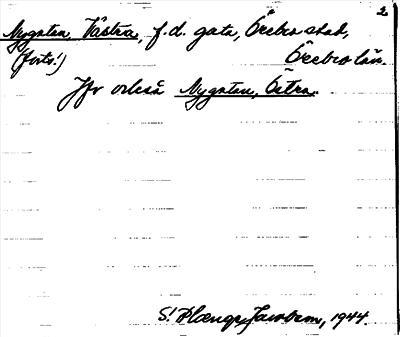 2
Nygatan Västra, f.d. gata, Örebro stad,
(forts.) Örebro län.
Jfr också Nygatan, Östra.
S. Jacobson, 1944.